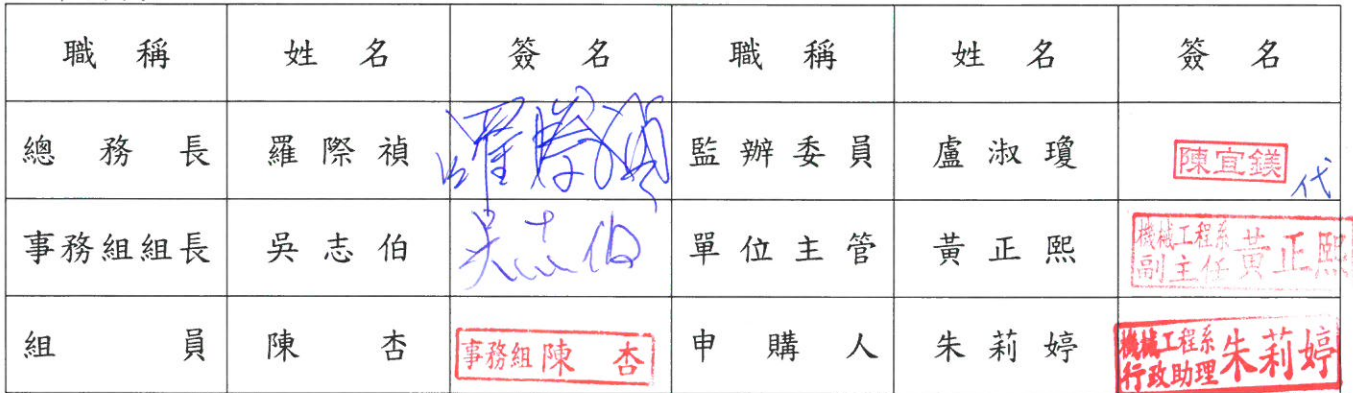 職稱 姓名 簽名 職稱 姓名 簽名
總務長 羅際禎 羅際禎 監辦委員 盧淑瓊 陳宜鎂 代
事務組組長 吳志伯 吳志伯 單位主管 黃正熙 機械工程系副主任 黃正熙
組員 陳杏 事務組 陳杏 申購人 朱莉婷 機械工程系行政助理 朱莉婷